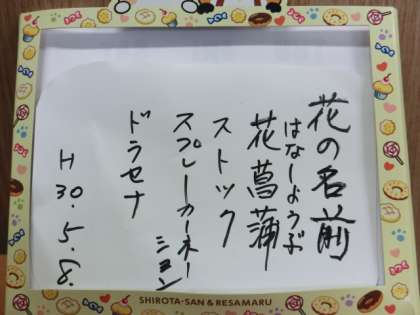 花の名前
はなしようぶ
花菖蒲
ストック
スプレーカーネーション
ドラセナ
H30.5.8.
SHIROTA-SAN & RESAMARU